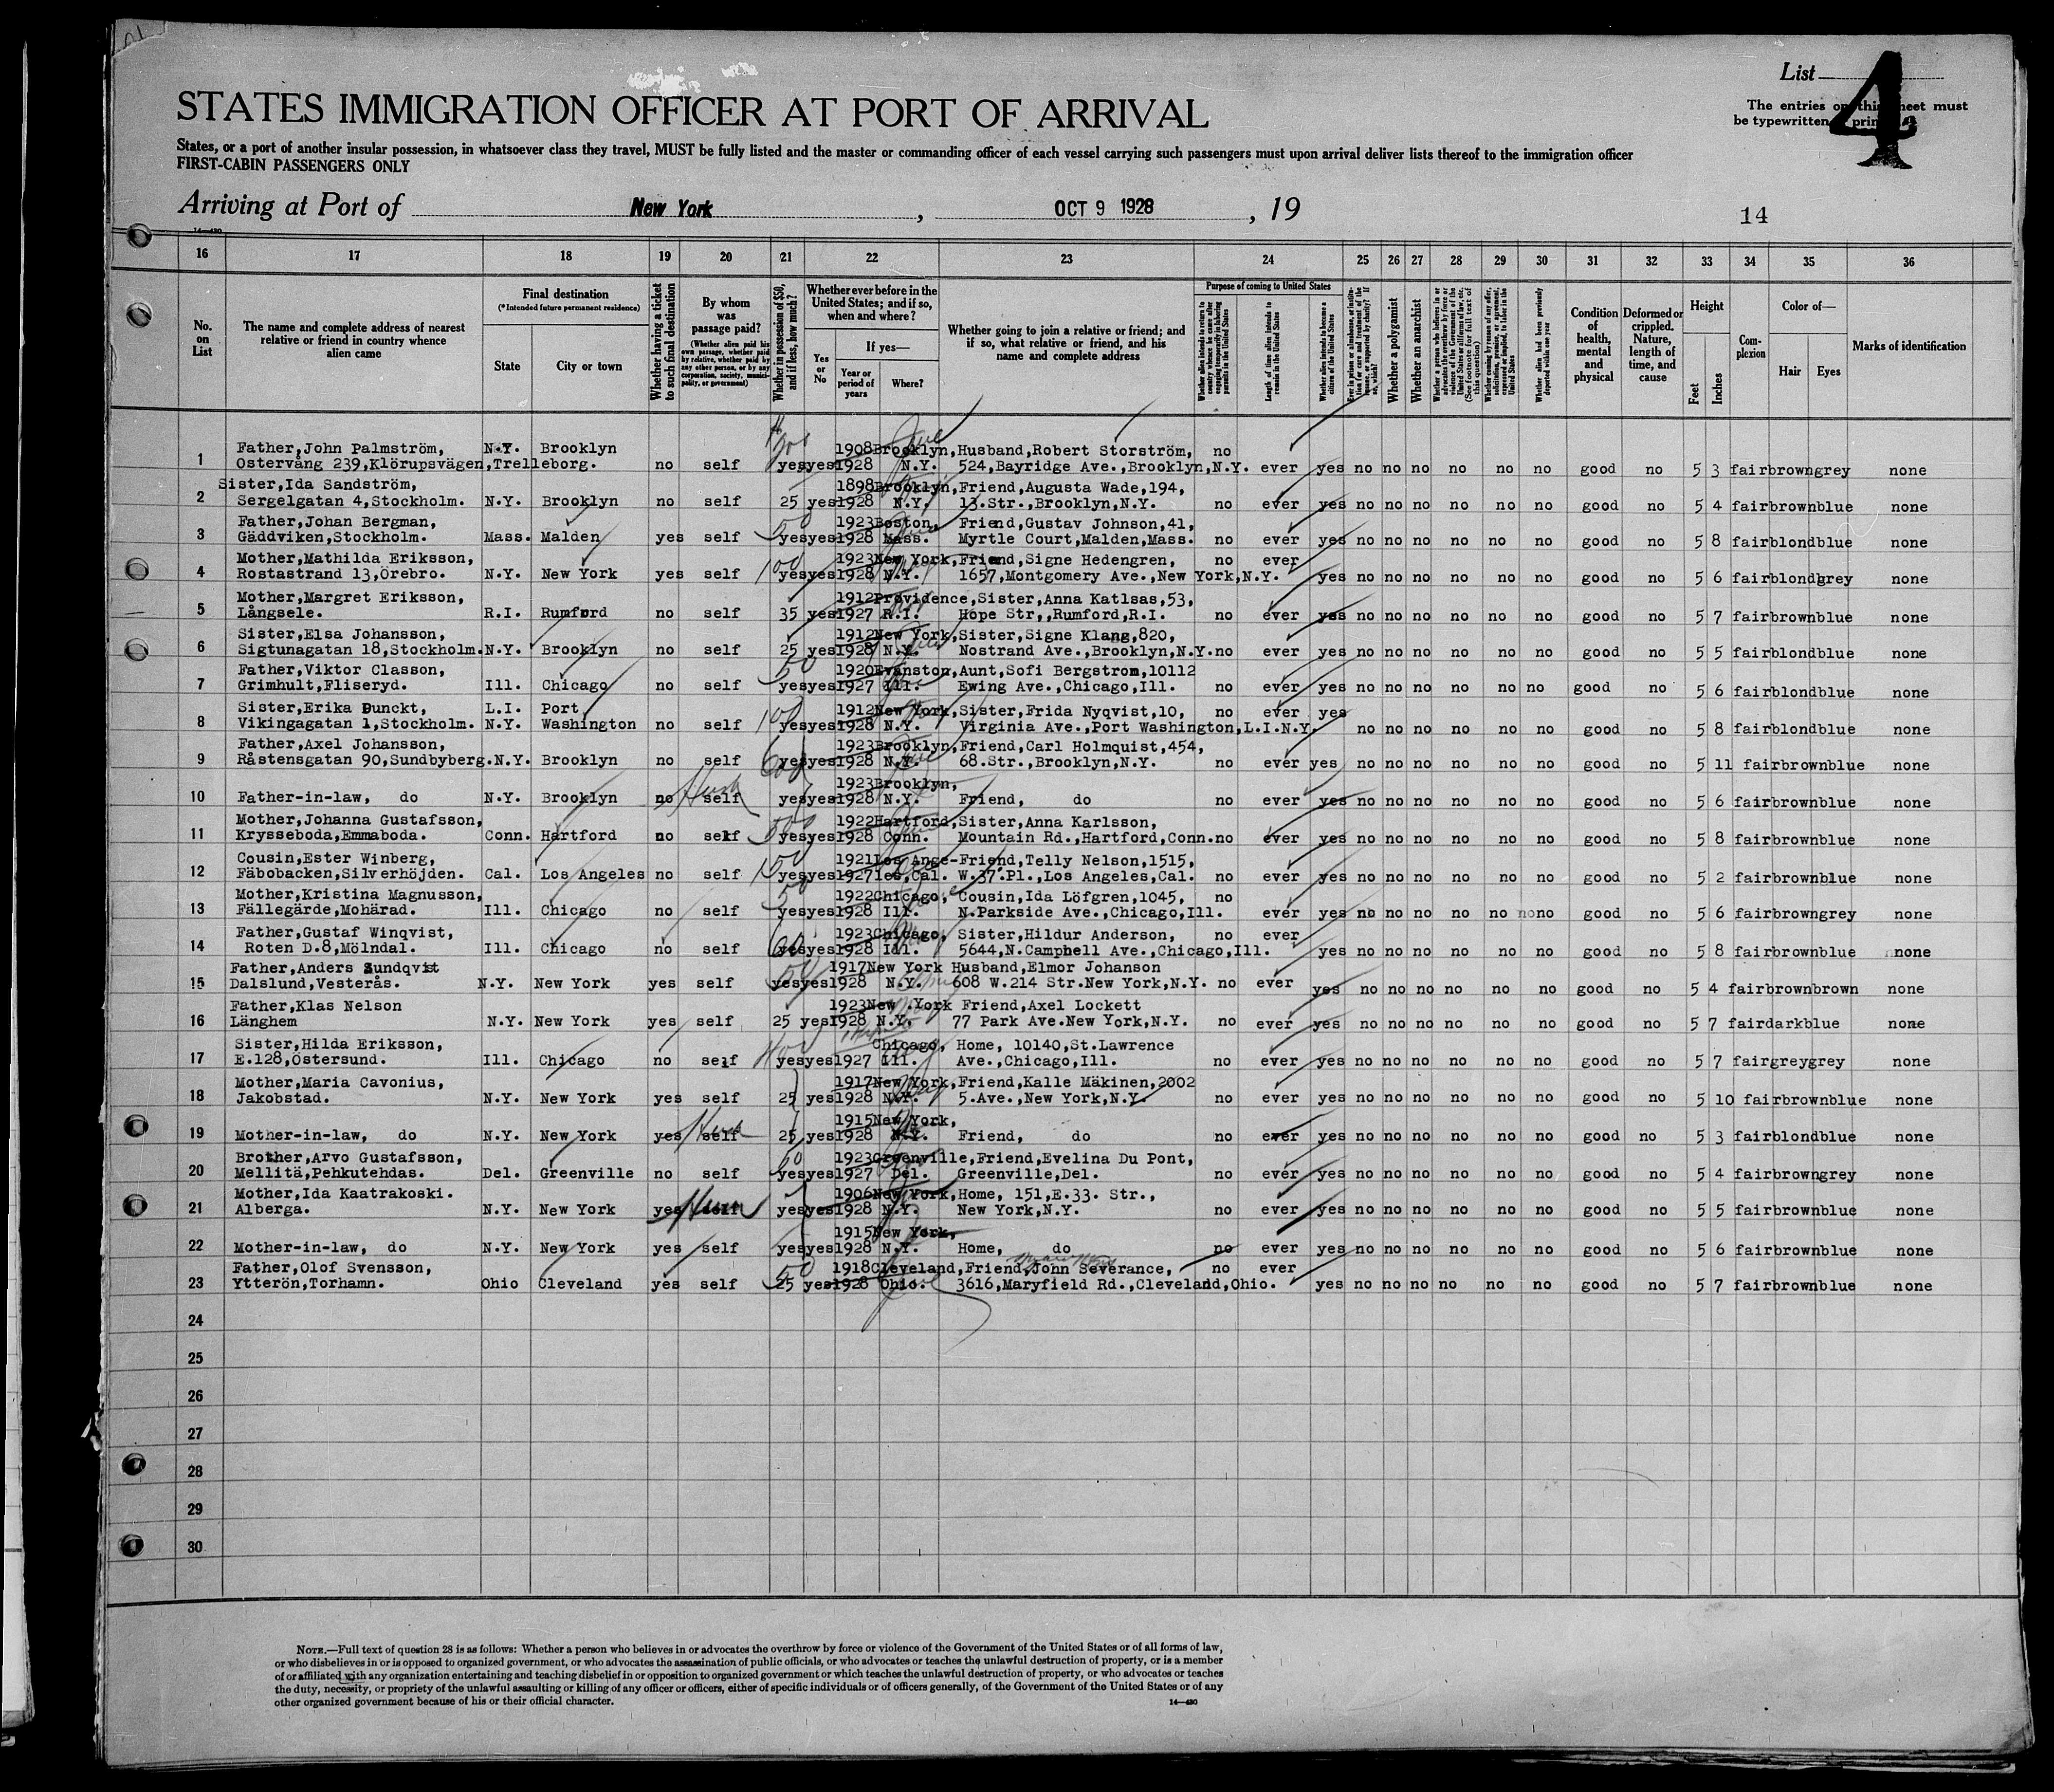 List 4
STATES IMMIGRATION OFFICER AT PORT OF ARRIVAL
The entries on this sheet must
be typewritten or printed
States, or a port of another insular possession, in whatsoever class they travel, MUST be fully listed and the master or commanding officer of each vessel carrying such passengers must upon arrival deliver lists thereof to the immigration officer
FIRST-CABIN PASSENGERS ONLY
Arriving at Port of New York, OCT 9 1928, 19
14
16 17 18 19 20 21 22 23 24 25 26 27 28 29 30 31 32 33 34 35 36
No. on List
The name and complete address of nearest relative or friend in country whence alien came
Final destination
(*Intended future permanent residence)
State
City or town
Whether having a ticket to such final destination
By whom was passage paid?
(Whether alien paid his own passage, whether paid by relative, whether paid by any other person, or by any corporation, society, municipality, or government)
Whether in possession of $50, and if less, how much?
Whether ever before in the United States; and if so, when and where?
Yes or No
If yes—
Year or period of years
Where?
Whether going to join a relative or friend; and if so, what relative or friend, and his name and complete address
Purpose of coming to United States
Length of time alien intends to remain in the United States
Whether alien intends to become a citizen of the United States
Whether a polygamist
Whether an anarchist
Whether alien had been previously deported within one year
Condition of health, mental and physical
Deformed or crippled. Nature, length of time, and cause
Height
Feet
Inches
Complexion
Color of—
Hair
Eyes
Marks of identification
Father,John Palmström, N.Y. Brooklyn 1908 Brooklyn,Husband,Robert Storström, no
1 Ostervång 239,Klörupsvägen,Trelleborg. no self yes yes 1928 N.Y. 524,Bayridge Ave.,Brooklyn,N.Y. ever yes no no no no no no good no 5 3 fair brown grey none
Sister,Ida Sandström, 1898 Brooklyn,Friend,Augusta Wade,194,
2 Sergelgatan 4,Stockholm. N.Y. Brooklyn no self 25 yes 1928 N.Y. 13.Str.,Brooklyn,N.Y. no ever yes no no no no no no good no 5 4 fair brown blue none
Father,Johan Bergman, 50 1923 Boston, Friend,Gustav Johnson,41,
3 Gäddviken,Stockholm. Mass. Malden yes self yes yes 1928 Mass. Myrtle Court,Malden,Mass. no ever yes no no no no no no good no 5 8 fair blond blue none
Mother,Mathilda Eriksson, 1923 New York,Friend,Signe Hedengren, no ever
4 Rostastrand 13,Örebro. N.Y. New York yes self 100 yes yes 1928 N.Y. 1657,Montgomery Ave.,New York,N.Y. yes no no no no no no good no 5 6 fair blond grey none
Mother,Margret Eriksson, 1912 Providence,Sister,Anna Katlsas,53,
5 Långsele. R.I. Rumford no self 35 yes 1927 R.I. Hope Str,,Rumford,R.I. no ever yes no no no no no no good no 5 7 fair brown blue none
Sister,Elsa Johansson, 1912 New York,Sister,Signe Klang,820,
6 Sigtunagatan 18,Stockholm. N.Y. Brooklyn no self 25 yes 1928 N.Y. Nostrand Ave.,Brooklyn,N.Y. no ever yes no no no no no no good no 5 5 fair blond blue none
Father,Viktor Classon, 50 1920 Evanston,Aunt,Sofi Bergstrom,10112
7 Grimhult,Fliseryd. Ill. Chicago no self yes yes 1927 Ill. Ewing Ave.,Chicago,Ill. no ever yes no no no no no no good no 5 6 fair blond blue none
Sister,Erika Dunckt, L.I. Port 1912 New York,Sister,Frida Nyqvist,10, no ever yes
8 Vikingagatan 1,Stockholm. N.Y. Washington no self 100 yes yes 1928 N.Y. Virginia Ave.,Port Washington,L.I.N.Y. no no no no no no good no 5 8 fair blond blue none
Father,Axel Johansson, 1923 Brooklyn,Friend,Carl Holmquist,454,
9 Råstensgatan 90,Sundbyberg. N.Y. Brooklyn no self 600 yes yes 1928 N.Y. 68.Str.,Brooklyn,N.Y. no ever yes no no no no no no good no 5 11 fair brown blue none
1923 Brooklyn,
10 Father-in-law, do N.Y. Brooklyn no self yes yes 1928 N.Y. Friend, do no ever yes no no no no no no good no 5 6 fair brown blue none
Mother,Johanna Gustafsson, 1922 Hartford,Sister,Anna Karlsson,
11 Krysseboda,Emmaboda. Conn. Hartford no self yes yes 1928 Conn. Mountain Rd.,Hartford,Conn. no ever yes no no no no no no good no 5 8 fair brown blue none
Cousin,Ester Winberg, 1921 Los Ange- Friend,Telly Nelson,1515,
12 Fäbobacken,Silverhöjden. Cal. Los Angeles no self 150 yes yes 1927 les,Cal. W.37.Pl.,Los Angeles,Cal. no ever yes no no no no no no good no 5 2 fair brown blue none
Mother,Kristina Magnusson, 50 1922 Chicago, Cousin,Ida Löfgren,1045, no
13 Fällegärde,Mohärad. Ill. Chicago no self yes yes 1928 Ill. N.Parkside Ave.,Chicago,Ill. ever yes no no no no no no no good no 5 6 fair brown grey none
Father,Gustaf Winqvist, 1923 Chicago, Sister,Hildur Anderson, no ever
14 Roten D.8,Mölndal. Ill. Chicago no self yes yes 1928 Ill. 5644,N.Campbell Ave.,Chicago,Ill. yes no no no no no no good no 5 8 fair brown blue none
Father,Anders Sundqvist 1917 New York Husband,Elmor Johanson
15 Dalslund,Vesterås. N.Y. New York yes self 50 yes yes 1928 N.Y. 608 W.214 Str.New York,N.Y. no ever yes no no no no no no good no 5 4 fair brown brown none
Father,Klas Nelson 1923 New York Friend,Axel Lockett
16 Länghem N.Y. New York yes self 25 yes 1928 N.Y. 77 Park Ave.New York,N.Y. no ever yes no no no no no no good no 5 7 fair dark blue none
Sister,Hilda Eriksson, Chicago, Home, 10140,St.Lawrence
17 E.128,Östersund. Ill. Chicago no self 400 yes yes 1927 Ill. Ave.,Chicago,Ill. no ever yes no no no no no no good no 5 7 fair grey grey none
Mother,Maria Cavonius, 1917 New York,Friend,Kalle Mäkinen,2002
18 Jakobstad. N.Y. New York yes self 25 yes 1928 N.Y. 5.Ave.,New York,N.Y. no ever yes no no no no no no good no 5 10 fair brown blue none
1915 New York,
19 Mother-in-law, do N.Y. New York yes self 25 yes 1928 N.Y. Friend, do no ever yes no no no no no no good no 5 3 fair blond blue none
Brother,Arvo Gustafsson, 1923 Greenville,Friend,Evelina Du Pont,
20 Mellitä,Pehkutehdas. Del. Greenville no self yes yes 1927 Del. Greenville,Del. no ever yes no no no no no no good no 5 4 fair brown grey none
Mother,Ida Kaatrakoski. 1906 New York,Home, 151,E.33. Str.,
21 Alberga. N.Y. New York yes self yes yes 1928 N.Y. New York,N.Y. no ever yes no no no no no no good no 5 5 fair brown blue none
1915 New York,
22 Mother-in-law, do N.Y. New York yes self yes yes 1928 N.Y. Home, do no ever yes no no no no no no good no 5 6 fair brown blue none
Father,Olof Svensson, 50 1918 Cleveland,Friend,John Severance, no ever
23 Ytterön,Torhamn. Ohio Cleveland yes self 25 yes 1928 Ohio. 3616,Maryfield Rd.,Cleveland,Ohio. yes no no no no no no good no 5 7 fair brown blue none
24
25
26
27
28
29
30
NOTE.—Full text of question 28 is as follows: Whether a person who believes in or advocates the overthrow by force or violence of the Government of the United States or of all forms of law,
or who disbelieves in or is opposed to organized government, or who advocates the assassination of public officials, or who advocates or teaches the unlawful destruction of property, or is a member
of or affiliated with any organization entertaining and teaching disbelief in or opposition to organized government or which teaches the unlawful destruction of property, or who advocates or teaches
the duty, necessity, or propriety of the unlawful assaulting or killing of any officer or officers, either of specific individuals or of officers generally, of the Government of the United States or of any
other organized government because of his or their official character.
14—430